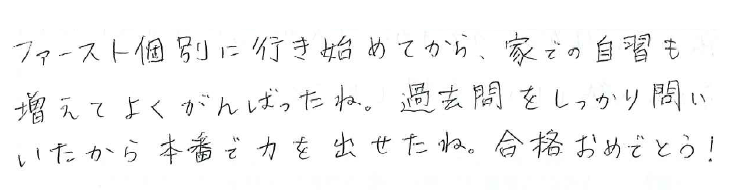 ファースト個別に行き始めてから、家での自習も
増えてよくがんばったね。過去問をしっかり問い
いたから本番で力を出せたね。合格おめでとう!